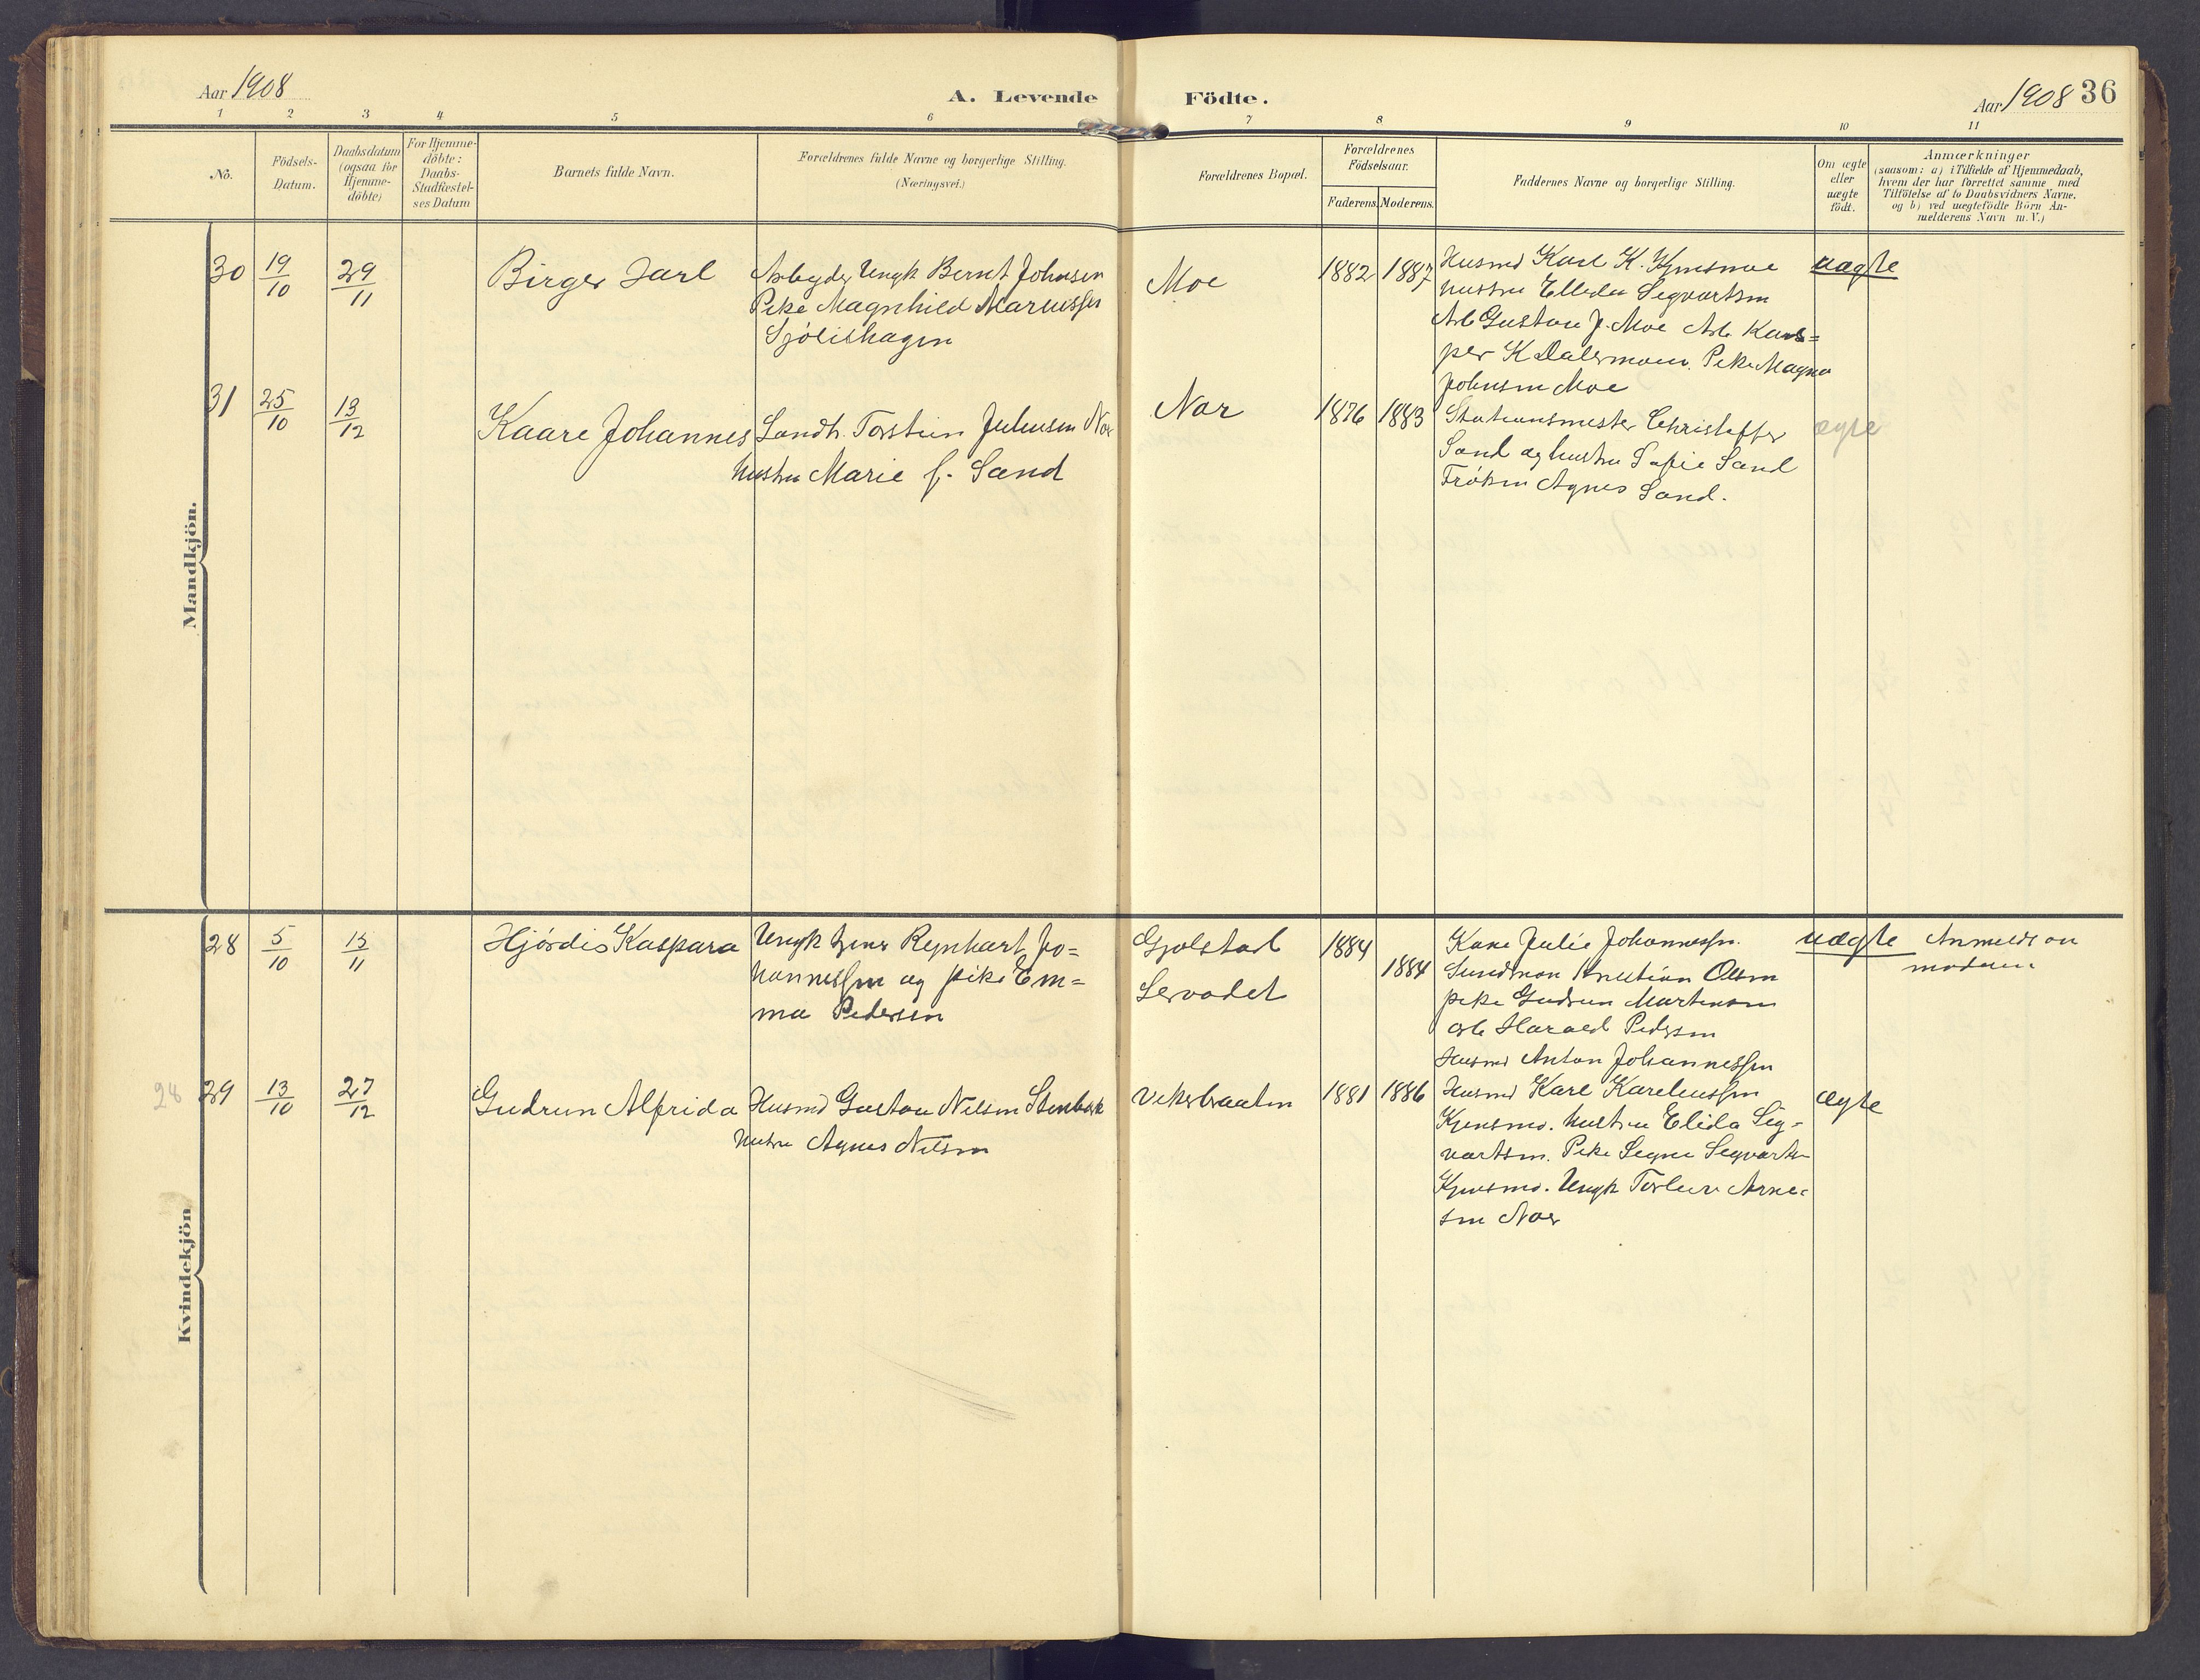 Aar 1908
A. Levende Födte.
Aar 1908 36
1 2 3 4 5 6 7 8 9 10 11
No.
Födsels-
Datum.
Daabsdatum
(ogsaa for
Hjemme-
döbte)
For Hjemme-
döbte:
Daabs-
Stadfæstel-
ses Datum
Barnets fulde Navn.
Forældrenes fulde Navne og borgerlige Stilling.
(Næringsvei.)
Forældrenes Bopæl.
Forældrenes
Födselsaar.
Faderens. Moderens.
Faddernes Navne og borgerlige Stilling.
Om ægte
eller
uægte
födt.
Anmærkninger
(saasom: a) i Tilfælde af Hjemmedaab,
hvem der har forrettet samme med
Tilföielse af to Daabsvidners Navne,
og b) ved uægtefödte Börn An-
melderens Navn m. V.)
Mandkjön.
30
19/10
29/11
Birger Jarl
Arbeyder Ungk Bernt Johnsen
Pike Magnhild Mariussen
Sjölishagen
Moe
1882 1887
Husmd Karl K. Kjensmoe
hustru Ellida Segvartsen
Arb Gustav J. Moe Arb Kas=
per K Dalermoen. Pike Magna
Johnsen Moe
uægte
31
25/10
13/12
Kaare Johannes
Landh. Torstein Juliussen Nor
hustru Marie f. Sand
Nor
1876 1883
Stationsmester Christoffer
Sand og hustru Sofie Sand
Fröken Agnes Sand.
ægte
Kvindekjön
28
5/10
15/11
Hjördis Kaspara
Ungk Reynhart Jo=
hannessen og pike Em=
ma Pedersen
Gjölstad
Servodet
1884
1884
Kone Julie Johannessen.
Sundman Kristian Olsen
pike Gudrun Martinsen
arb Harald Pedersen
Husmd Anton Johannessen
uægte
Anmeldt av
moderen
28 29
13/10
27/12
Gudrun Alfrida
Husmd Gustav Nilsen Stenbæk
hustru Agnes Nilsen
Vikerbraaten
1881 1886
Husmd Karl Kareliussen
Kjensmo. hustru Elida Sig=
vartsen. Pike Segne Segvarts
Kjensmo. Ungk Torleiv Arne=
sen Nor
ægte